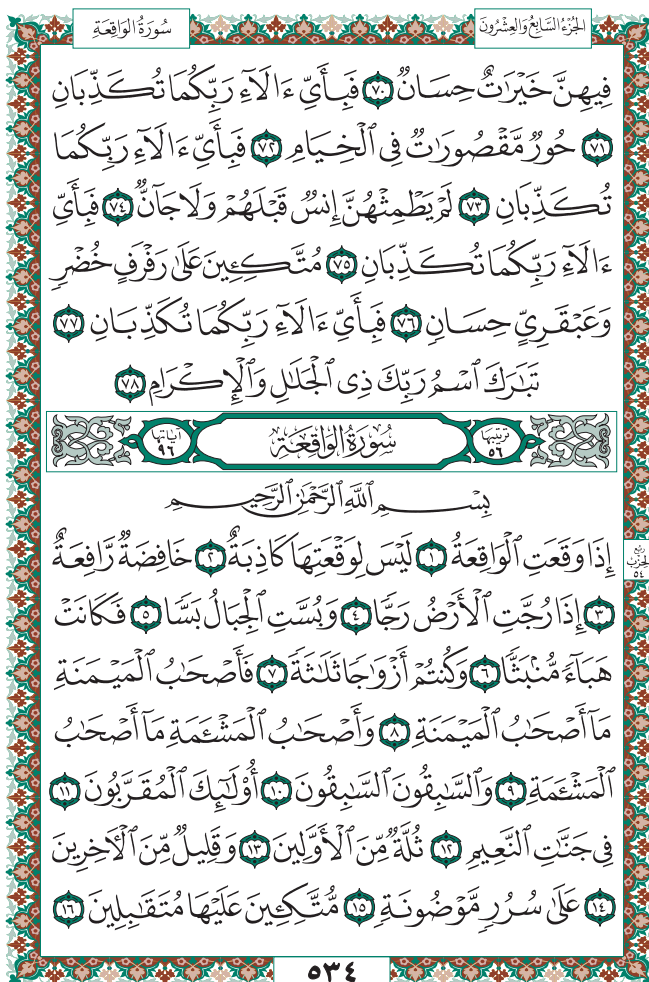 سُورَةُ الوَاقِعَةِ
الجُزْءُ السَّابِعُ وَالعِشْرُونَ
فِيهِنَّ خَيْرَٰتٌ حِسَانٌ ٧٠ فَبِأَىِّ ءَالَآءِ رَبِّكُمَا تُكَذِّبَانِ
٧١ حُورٌ مَّقْصُورَٰتٌ فِى ٱلْخِيَامِ ٧٢ فَبِأَىِّ ءَالَآءِ رَبِّكُمَا
تُكَذِّبَانِ ٧٣ لَمْ يَطْمِثْهُنَّ إِنسٌ قَبْلَهُمْ وَلَا جَآنٌّ ٧٤ فَبِأَىِّ
ءَالَآءِ رَبِّكُمَا تُكَذِّبَانِ ٧٥ مُتَّكِـِٔينَ عَلَىٰ رَفْرَفٍ خُضْرٍ
وَعَبْقَرِىٍّ حِسَانٍ ٧٦ فَبِأَىِّ ءَالَآءِ رَبِّكُمَا تُكَذِّبَانِ ٧٧
تَبَٰرَكَ ٱسْمُ رَبِّكَ ذِى ٱلْجَلَٰلِ وَٱلْإِكْرَامِ ٧٨
تَرتِيبُهَا ٥٦ سُورَةُ الوَاقِعَةِ آيَاتُهَا ٩٦
بِسْمِ ٱللَّهِ ٱلرَّحْمَٰنِ ٱلرَّحِيمِ
إِذَا وَقَعَتِ ٱلْوَاقِعَةُ ١ لَيْسَ لِوَقْعَتِهَا كَاذِبَةٌ ٢ خَافِضَةٌ رَّافِعَةٌ
ربع الحزب ٥٤
٣ إِذَا رُجَّتِ ٱلْأَرْضُ رَجًّا ٤ وَبُسَّتِ ٱلْجِبَالُ بَسًّا ٥ فَكَانَتْ
هَبَآءً مُّنۢبَثًّا ٦ وَكُنتُمْ أَزْوَٰجًا ثَلَٰثَةً ٧ فَأَصْحَٰبُ ٱلْمَيْمَنَةِ
مَآ أَصْحَٰبُ ٱلْمَيْمَنَةِ ٨ وَأَصْحَٰبُ ٱلْمَشْـَٔمَةِ مَآ أَصْحَٰبُ
ٱلْمَشْـَٔمَةِ ٩ وَٱلسَّٰبِقُونَ ٱلسَّٰبِقُونَ ١٠ أُو۟لَٰٓئِكَ ٱلْمُقَرَّبُونَ ١١
فِى جَنَّٰتِ ٱلنَّعِيمِ ١٢ ثُلَّةٌ مِّنَ ٱلْأَوَّلِينَ ١٣ وَقَلِيلٌ مِّنَ ٱلْءَاخِرِينَ
١٤ عَلَىٰ سُرُرٍ مَّوْضُونَةٍ ١٥ مُّتَّكِـِٔينَ عَلَيْهَا مُتَقَٰبِلِينَ ١٦
٥٣٤